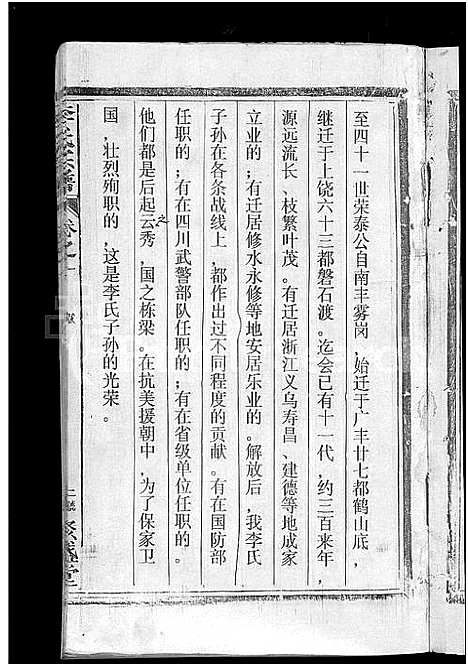 至四十一世荣泰公自南丰雾岗，始迁于广丰廿七都鹤山底，
继迁于上饶六十三都磐石渡。迄会已有十一代，约三百来年，
源远流长、枝繁叶茂。有迁居浙江义乌寿昌、建德等地成家
立业的。有迁居修水永修等地安居乐业的。解放后，我李氏
子孙在各条战线上，都作出过不同程度的贡献。有在国防部
任职的；有在四川武警部队任职的；有在省级单位任职的。
他们都是后起之云秀，国之栋梁。在抗美援朝中，为了保家卫
国，壮烈殉职的，这是李氏子孙的光荣。
李氏宗谱
卷之一